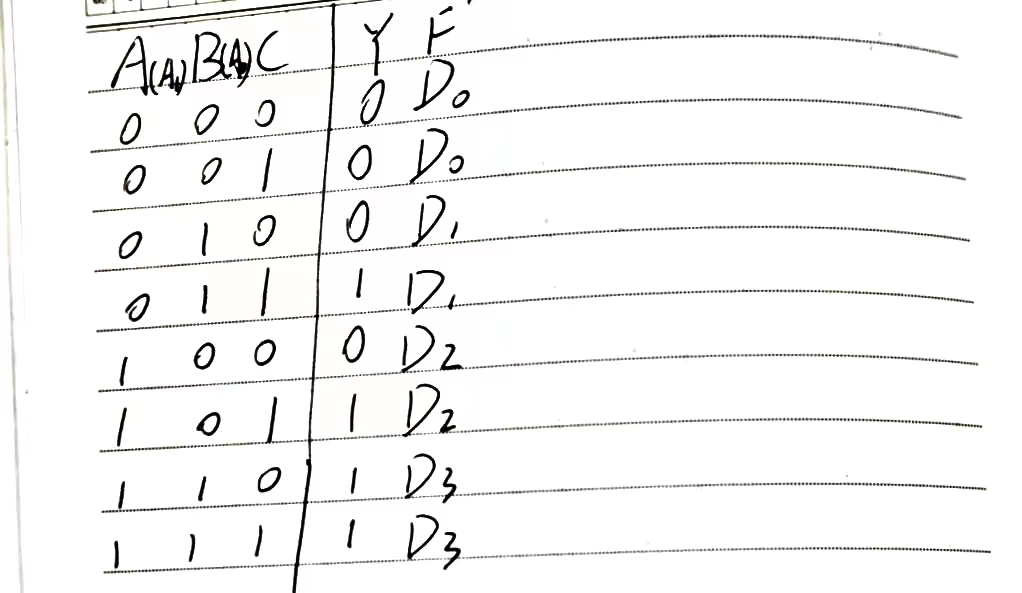 A(A₁) B(A₀) C Y F
0 0 0 0 D₀
0 0 1 0 D₀
0 1 0 0 D₁
0 1 1 1 D₁
1 0 0 0 D₂
1 0 1 1 D₂
1 1 0 1 D₃
1 1 1 1 D₃